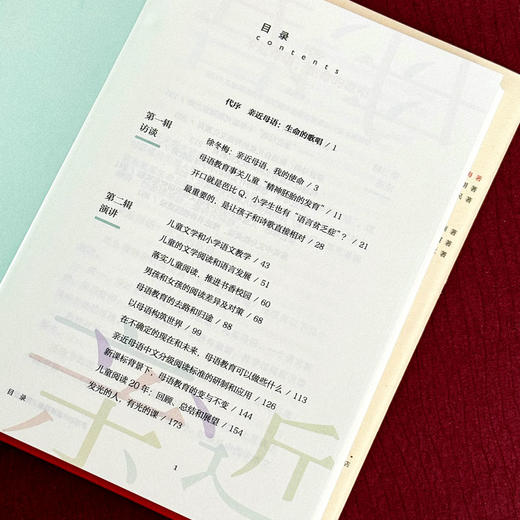 目录
contents
代序 亲近母语：生命的歌唱 / 1
第一辑
访谈
徐冬梅：亲近母语，我的使命 / 3
母语教育事关儿童“精神胚胎的发育” / 11
开口就是芭比Q，小学生也有“语言贫乏症”？ / 21
最重要的，是让孩子和诗歌直接相对 / 28
第二辑
演讲
儿童文学和小学语文教学 / 43
儿童的文学阅读和语言发展 / 51
落实儿童阅读，推进书香校园 / 60
男孩和女孩的阅读差异及对策 / 68
母语教育的去路和归途 / 88
以母语构筑世界 / 99
在不确定的现在和未来，母语教育可以做些什么 / 113
亲近母语中文分级阅读标准的研制和应用 / 126
新课标背景下，母语教育的变与不变 / 144
儿童阅读20年：回顾、总结和展望 / 154
发光的人，有光的课 / 173
目录
1